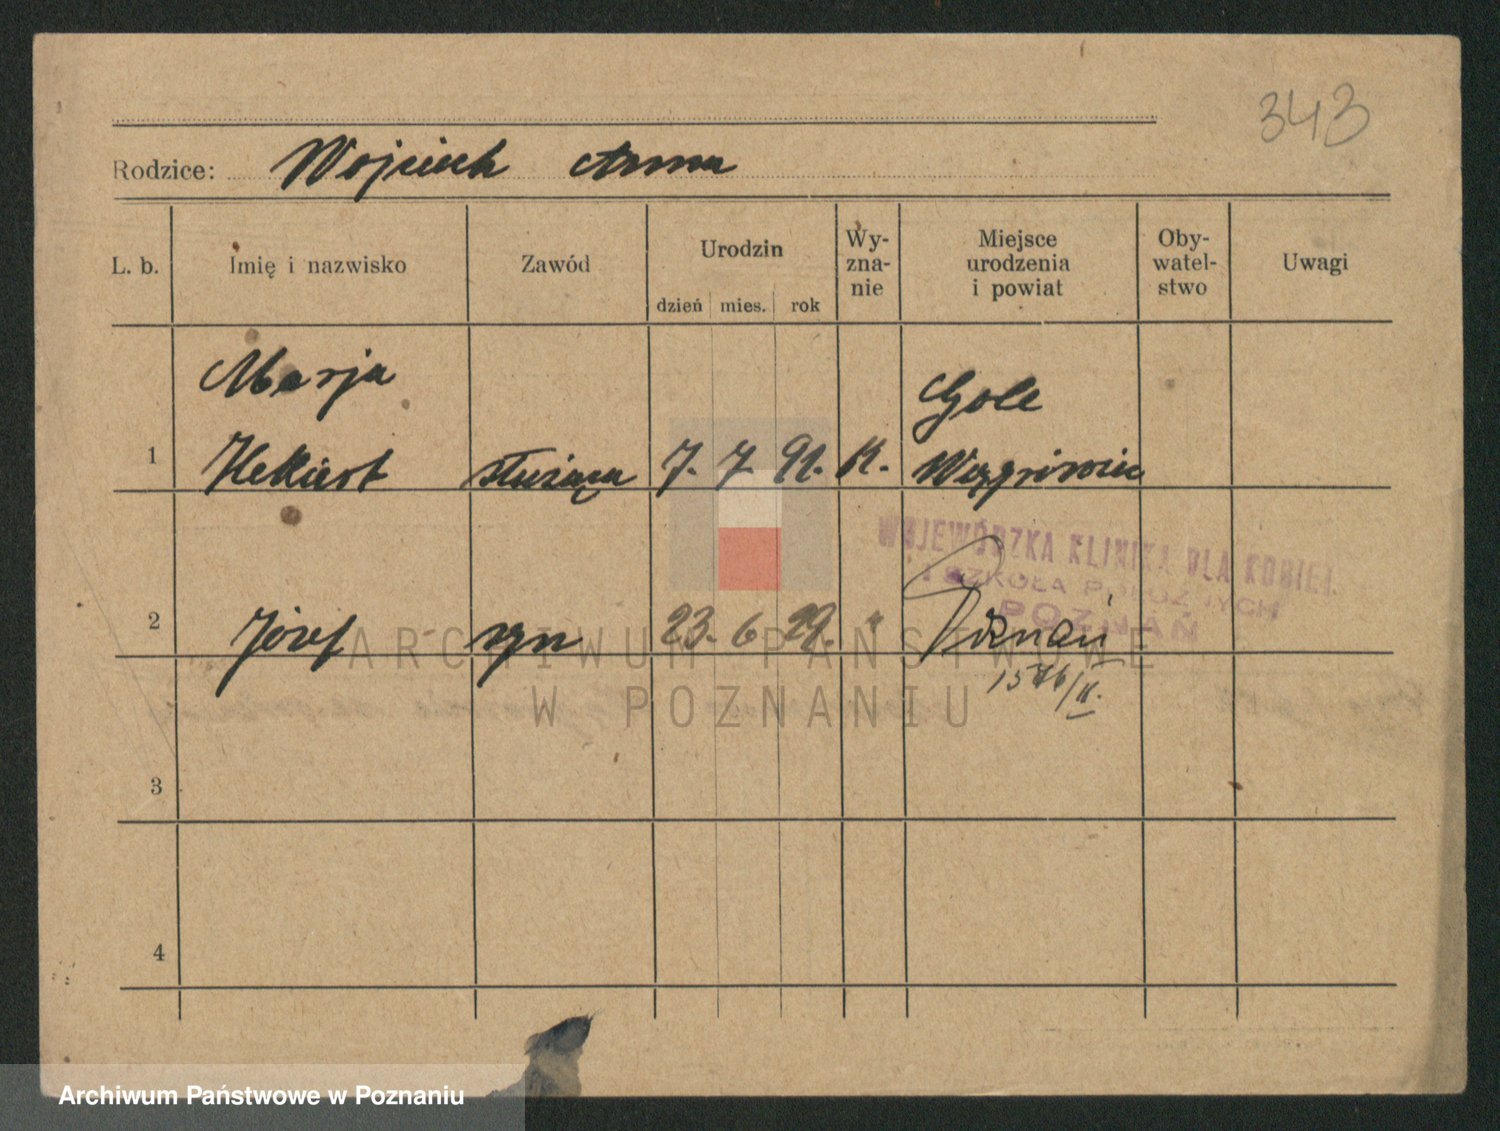 343
Rodzice: Wojciech Anna
L. b. Imię i nazwisko Zawód Urodzin dzień mies. rok Wy-zna-nie Miejsce urodzenia i powiat Oby-watel-stwo Uwagi
Marja Gole
1 Hekiert służąca 7. 7 91. K. Wągrowiec
WOJEWÓDZKA KLINIKA DLA KOBIET
I SZKOŁA POŁOŻNYCH
POZNAŃ
2 Józef syn 23. 6 29. " Poznań
ARCHIWUM PAŃSTWOWE
W POZNANIU
3
4
Archiwum Państwowe w Poznaniu